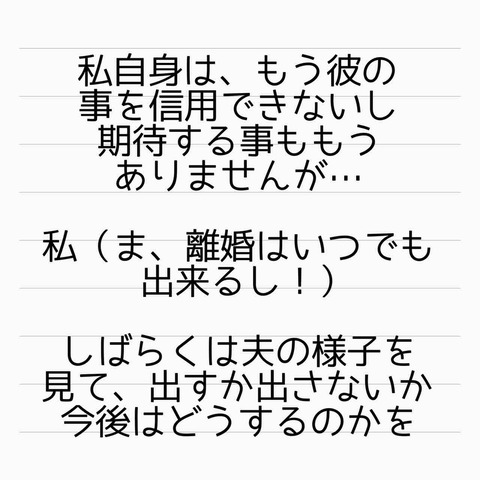 私自身は、もう彼の
事を信用できないし
期待する事ももう
ありませんが…
私（ま、離婚はいつでも
出来るし！）
しばらくは夫の様子を
見て、出すか出さないか
今後はどうするのかを